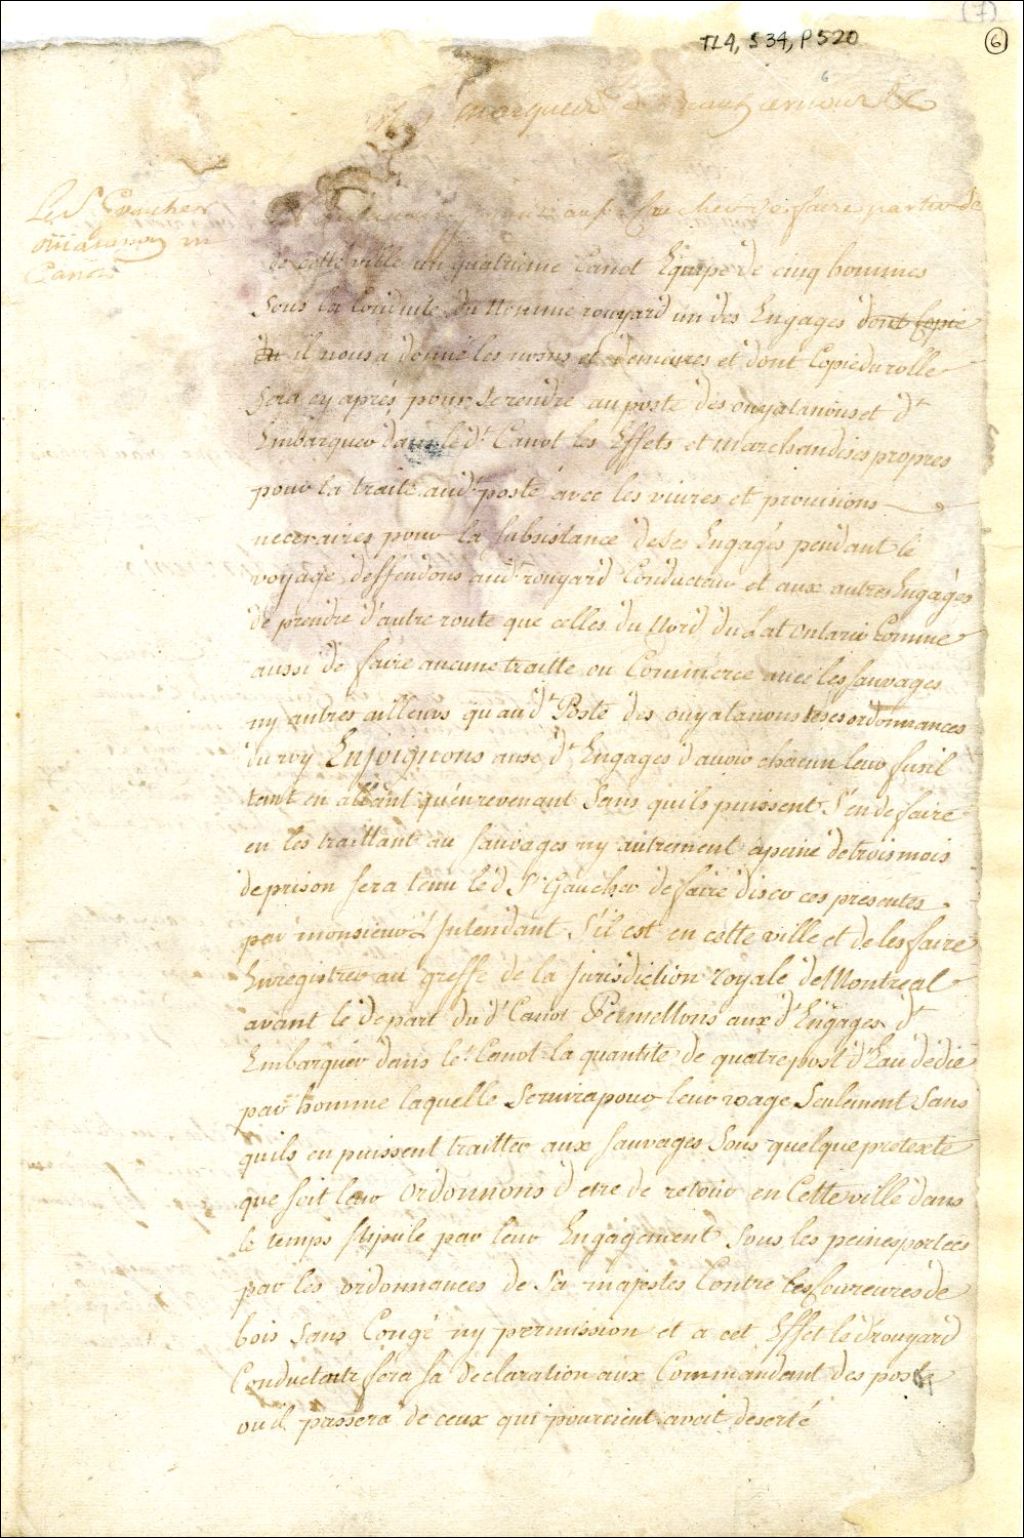 (7)
TL4, S34, P520
6
6
Marquis de Beauharnois &c
Le Sr Gaucher
ouiatanon un
Canot
permis au Sr Gaucher de faire partir de
de cette ville un quatrieme Canot Equipé de cinq hommes
Sous la Conduite du Nommé rouyard un des Engagés dont copie
du il nous a donné les noms et demeures et dont Copie du rolle
Sera cy aprés pour Se rendre au poste des ouyatanons et d'
Embarquer dans le dt Canot les Effets et Marchandises propres
pour la traite audt poste avec les vivres et provisions
necessaires pour la Subsistance de Ses Engagés pendant le
voyage deffendons audt rouyard Conducteur et aux autres Engagés
de prendre d'autre route que celles du Nord du Lac Ontario Comme
aussi de faire aucune traitte ou Commerce avec les Sauvages
ny autres ailleurs qu'au dt Poste des ouyatanons ordonnances
du roy Enjoignons aux dt Engagés d'avoir chacun leur fusil
tant en allant qu'en revenant Sans quils puissent S'en defaire
en les traittant au Sauvages ny autrement apeine de trois mois
de prison Sera tenu le d Sr Gaucher de faire viser ces presentes
par monsieur L'Intendant S'il est en cette ville et de les faire
Enregistrer au greffe de la Jurisdiction royale de Montreal
avant le depart du dt Canot Permettons aux dt Engagés d'
Embarquer dans le t Canot la quantité de quatre post d'Eau dedie
par homme laquelle Servira pour leur voage Seulement Sans
quils en puissent traitter aux Sauvages Sous quelque pretexte
que soit leur Ordonnons d'etre de retour en Cette ville dans
le temps Stipulé par leur Engagement Sous les peines portées
par les ordonnances de Sa majestes Contre les Coureures de
bois Sans Congé ny permission et a cet Effet le d rouyard
Conducteur fera Sa declaration aux Commandant des postes
ou il passera de ceux qui pouroient avoit deserté